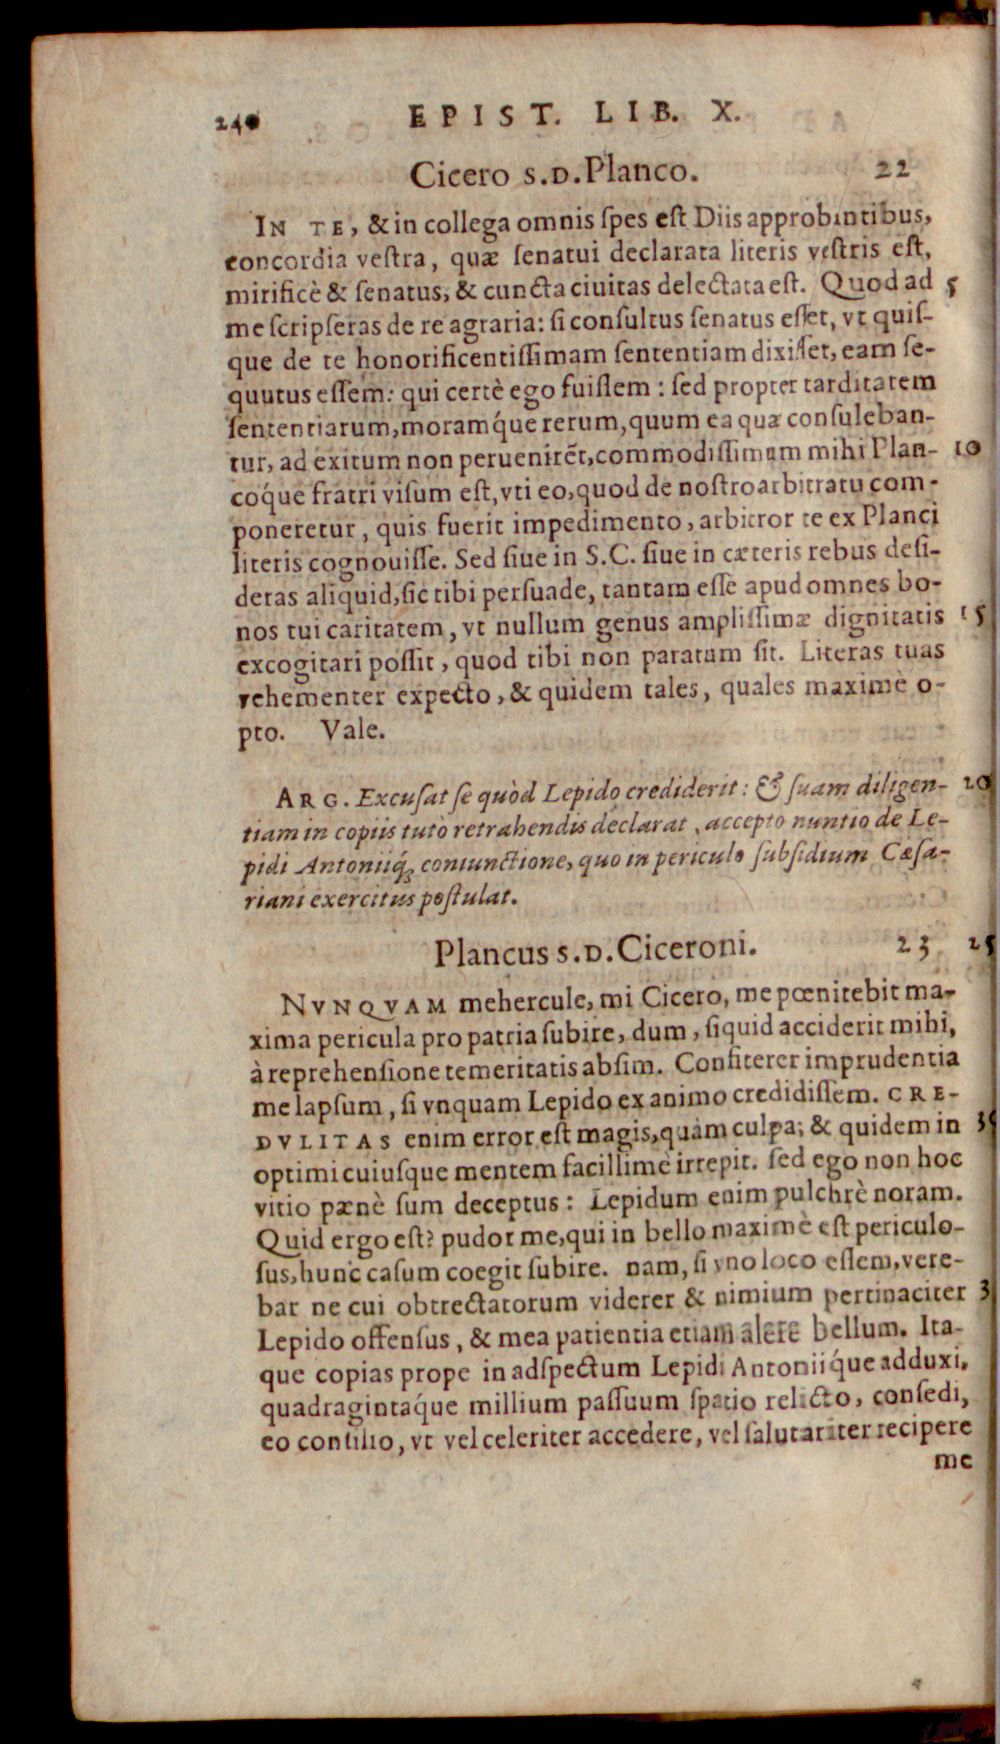 240 EPIST. LIB. X.
Cicero S.D. Planco. 22
IN TE, & in collega omnis ſpes eſt Diis approbintibus,
concordia veſtra, quæ ſenatui declarata literis veſtris eſt,
mirificè & ſenatus, & cuncta ciuitas delectata eſt. Quod ad 5
me ſcripſeras de re agraria: ſi conſultus ſenatus eſſet, vt quiſ-
que de te honorificentiſſimam ſententiam dixiſſet, eam ſe-
quutus eſſem: qui certè ego fuiſſem: ſed propter tarditatem
ſententiarum, moramq́ue rerum, quum ea quæ conſuleban-
tur, ad exitum non peruenirẽt, commodiſſimum mihi Plan- 10
coq́ue fratri viſum eſt, vti eo, quod de noſtro arbitratu com-
poneretur, quis fuerit impedimento, arbitror te ex Planci
literis cognouiſſe. Sed ſiue in S.C. ſiue in cæteris rebus deſi-
deras aliquid, ſic tibi perſuade, tantam eſſe apud omnes bo-
nos tui caritatem, vt nullum genus ampliſſimæ dignitatis 15
excogitari poſſit, quod tibi non paratum ſit. Literas tuas
vehementer expecto, & quidem tales, quales maximè o-
pto. Vale.
ARG. Excuſat ſe quòd Lepido crediderit: & ſuam diligen- 20
tiam in copiis tutò retrahendis declarat, accepto nuntio de Le-
pidi Antoniiq́; coniunctione, quo in periculo ſubſidium Cæſa-
riani exercitus poſtulat.
Plancus S.D. Ciceroni. 23 25
NVNQVAM mehercule, mi Cicero, me pœnitebit ma-
xima pericula pro patria ſubire, dum, ſiquid acciderit mihi,
à reprehenſione temeritatis abſim. Confiterer imprudentia
me lapſum, ſi vnquam Lepido ex animo credidiſſem. CRE-
DVLITAS enim error eſt magis, quàm culpa; & quidem in 30
optimi cuiuſque mentem facillimè irrepit. ſed ego non hoc
vitio pænè ſum deceptus: Lepidum enim pulchrè noram.
Quid ergo eſt? pudor me, qui in bello maximè eſt periculo-
ſus, hunc caſum coegit ſubire. nam, ſi vno loco eſſem, vere-
bar ne cui obtrectatorum viderer & nimium pertinaciter 3
Lepido offenſus, & mea patientia etiam alere bellum. Ita-
que copias prope in adſpectum Lepidi Antoniiq́ue adduxi,
quadragintaq́ue millium paſſuum ſpatio relicto, conſedi,
eo conſilio, vt vel celeriter accedere, vel ſalutariter recipere
me